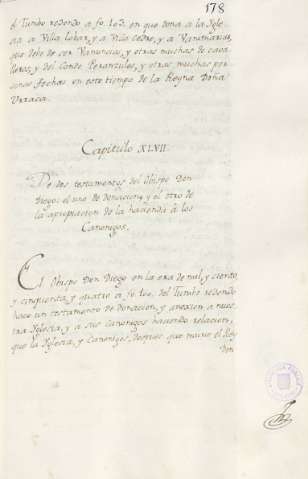 178
el Tumbo redondo a fo. 103. en que dona a la Igle
sia a Villa lobar, y a Villa Cedre, y a Vanuncias,
que debe de ser Vanuncias, y otras muchas de cava
lleros, y del Conde Peranzules, y otras muchas per
sonas fechas en este tiempo de la Reyna Doña
Urraca.
Capitulo XLVII.
De dos testamentos del Obispo Don
Diego: el uno de donacion, y el otro de
la apropiacion de la hacienda á los
Canonigos.
El Obispo Don Diego en la era de mil, y ciento,
y cinquenta, y quatro a fo. 100. del Tumbo redondo
hace un testamento de donacion, y anexion a nues
tra Iglesia, y a sus Canonigos haciendo relacion,
que la Iglesia, y Canonigos, despues que murio el Rey
Don